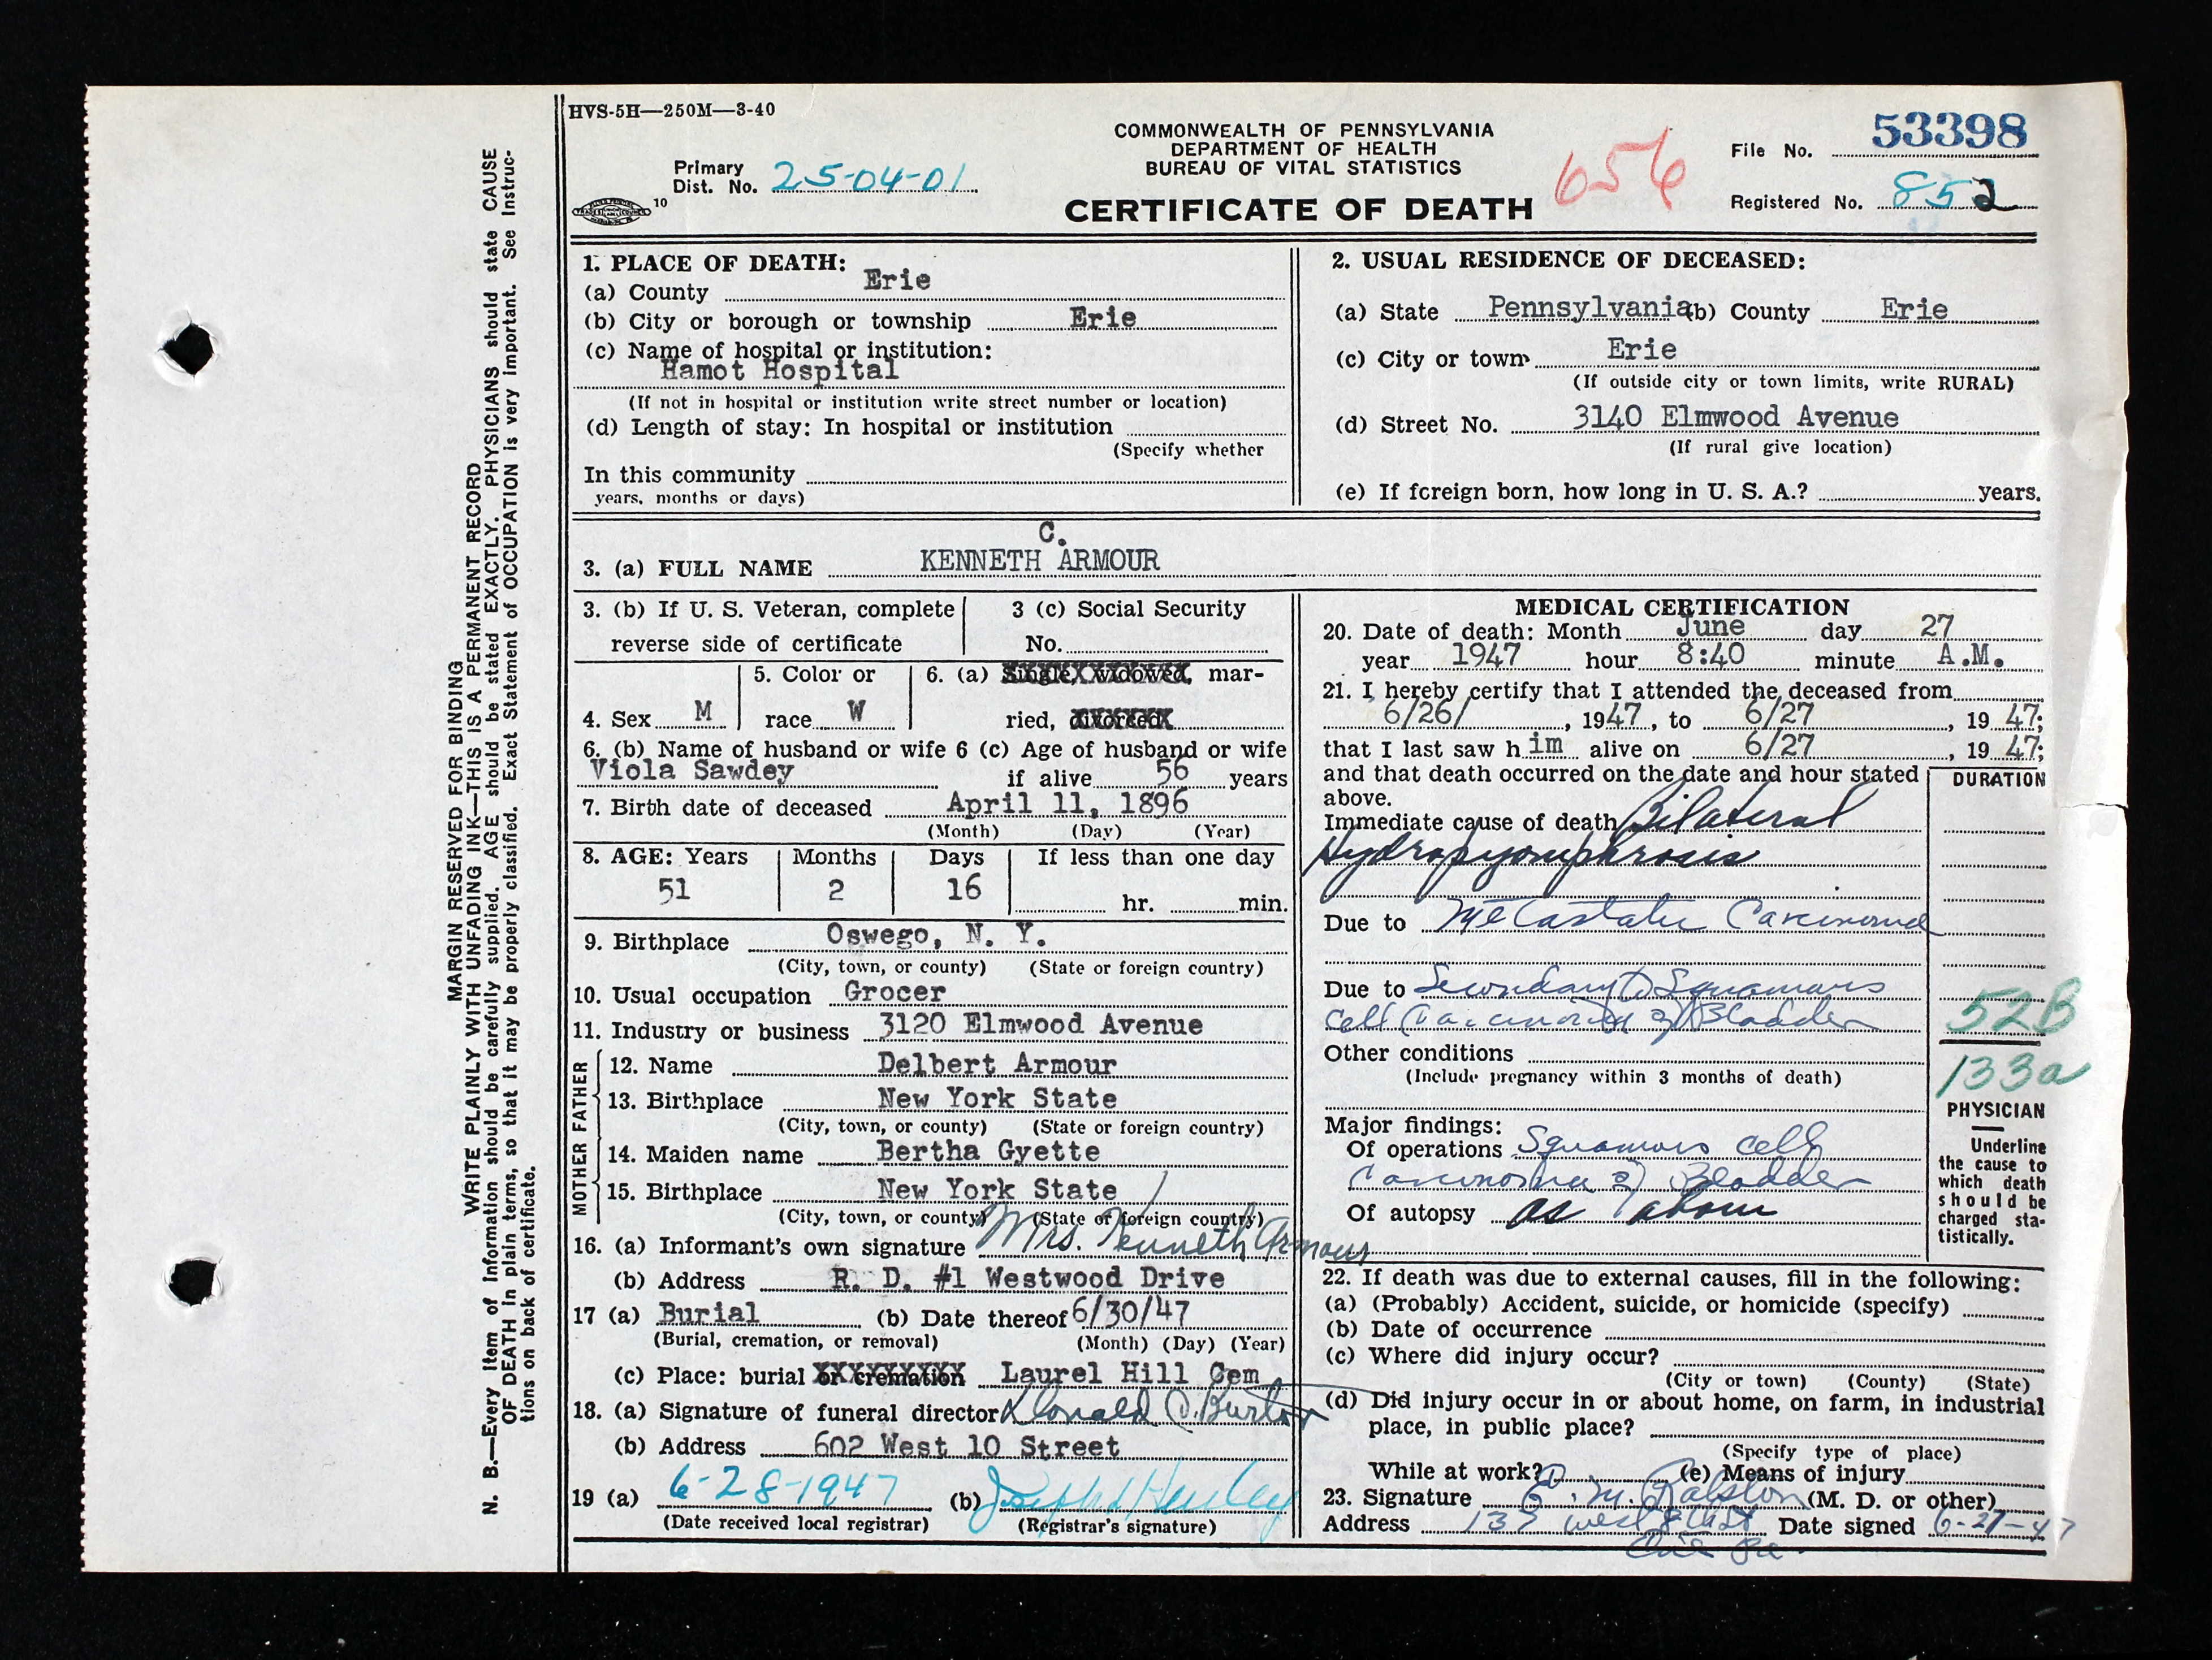 HVS-5H—250M—3-40
COMMONWEALTH OF PENNSYLVANIA
DEPARTMENT OF HEALTH
BUREAU OF VITAL STATISTICS
CERTIFICATE OF DEATH
Primary
Dist. No. 25-04-01
10
656
File No. 53398
Registered No. 852
MARGIN RESERVED FOR BINDING
WRITE PLAINLY WITH UNFADING INK—THIS IS A PERMANENT RECORD
N. B.—Every item of information should be carefully supplied. AGE should be stated EXACTLY. PHYSICIANS should state CAUSE
OF DEATH in plain terms, so that it may be properly classified. Exact Statement of OCCUPATION is very important. See Instruc-
tions on back of certificate.
1. PLACE OF DEATH:
(a) County Erie
(b) City or borough or township Erie
(c) Name of hospital or institution:
Hamot Hospital
(If not in hospital or institution write street number or location)
(d) Length of stay: In hospital or institution
(Specify whether
In this community
years, months or days)
2. USUAL RESIDENCE OF DECEASED:
(a) State Pennsylvania (b) County Erie
(c) City or town Erie
(If outside city or town limits, write RURAL)
(d) Street No. 3140 Elmwood Avenue
(If rural give location)
(e) If foreign born, how long in U. S. A.? years.
C.
3. (a) FULL NAME KENNETH ARMOUR
3. (b) If U. S. Veteran, complete
reverse side of certificate
3 (c) Social Security
No.
4. Sex M
5. Color or
race W
6. (a) Single, widowed, mar-
ried, divorced
6. (b) Name of husband or wife 6 (c) Age of husband or wife
Viola Sawdey if alive 56 years
7. Birth date of deceased April 11, 1896
(Month) (Day) (Year)
8. AGE: Years Months Days If less than one day
51 2 16 hr. min.
9. Birthplace Oswego, N. Y.
(City, town, or county) (State or foreign country)
10. Usual occupation Grocer
11. Industry or business 3120 Elmwood Avenue
FATHER
12. Name Delbert Armour
13. Birthplace New York State
(City, town, or county) (State or foreign country)
MOTHER
14. Maiden name Bertha Gyette
15. Birthplace New York State
(City, town, or county) (State or foreign country)
16. (a) Informant's own signature Mrs. Kenneth Armour
(b) Address R. D. #1 Westwood Drive
17 (a) Burial (b) Date thereof 6/30/47
(Burial, cremation, or removal) (Month) (Day) (Year)
(c) Place: burial or cremation Laurel Hill Cem
18. (a) Signature of funeral director Donald C. Burton
(b) Address 602 West 10 Street
19 (a) 6-28-1947 (b) Joseph Henley
(Date received local registrar) (Registrar's signature)
MEDICAL CERTIFICATION
20. Date of death: Month June day 27
year 1947 hour 8:40 minute A.M.
21. I hereby certify that I attended the deceased from
6/26/, 1947, to 6/27, 19 47;
that I last saw h im alive on 6/27, 19 47;
and that death occurred on the date and hour stated
above.
DURATION
Immediate cause of death Bilateral
Hydropyonephrosis
Due to Metastatic Carcinoma
Due to Secondary to Squamous
Cell Carcinoma of Bladder
52B
133a
Other conditions
(Include pregnancy within 3 months of death)
Major findings:
Of operations Squamous cell
Carcinoma of Bladder
Of autopsy as above
PHYSICIAN
Underline
the cause to
which death
should be
charged sta-
tistically.
22. If death was due to external causes, fill in the following:
(a) (Probably) Accident, suicide, or homicide (specify)
(b) Date of occurrence
(c) Where did injury occur?
(City or town) (County) (State)
(d) Did injury occur in or about home, on farm, in industrial
place, in public place?
(Specify type of place)
While at work? (e) Means of injury
23. Signature M. Ralston (M. D. or other)
Address West 8th St Date signed 6-27-47
Erie Pa.